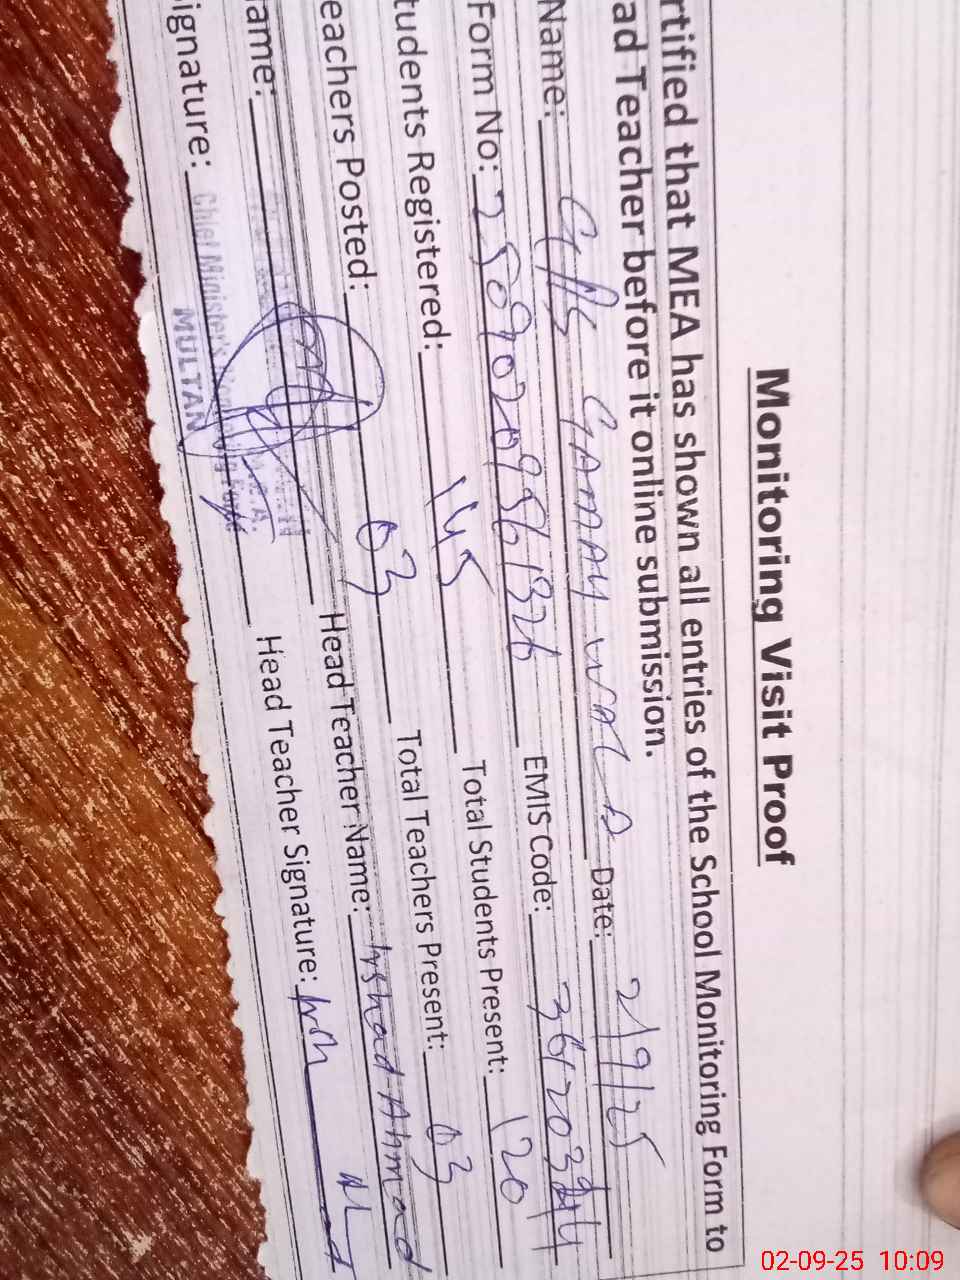 Monitoring Visit Proof
rtified that MEA has shown all entries of the School Monitoring Form to
ad Teacher before it online submission.
Name: GPS GAMAY WALA Date: 2/9/25
Form No: EMIS Code:
tudents Registered: 145 Total Students Present: 120
eachers Posted: 03 Total Teachers Present: 03
ame: Head Teacher Name: Irshad Ahmad
ignature: Head Teacher Signature:
Chief Minister's Monitoring Force
MULTAN
02-09-25 10:09